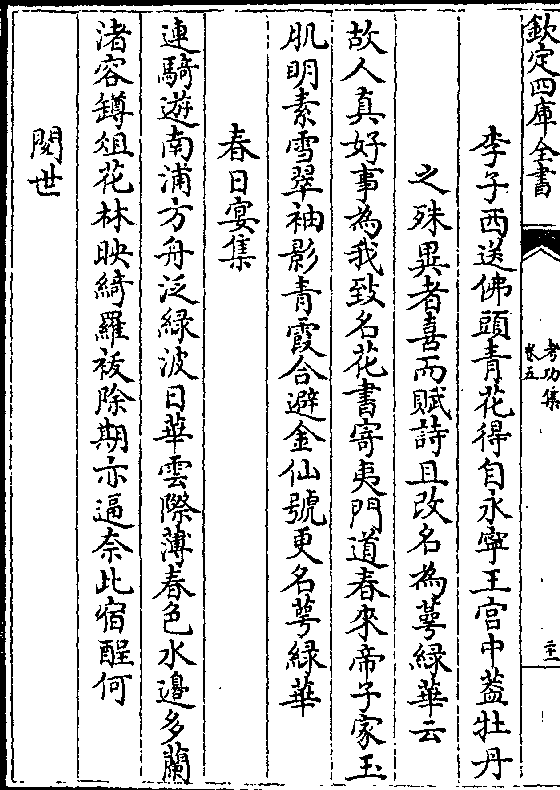 欽定四庫全書
考功集
卷五
李子西送佛頭青花得自永寧王宮中葢牡丹
之殊異者喜而賦詩且改名為萼緑華云
故人真好事為我致名花書寄夷門道春來帝子家玉
肌明素雪翠袖影青霞合避金仙號更名萼緑華
春日宴集
連騎遊南浦方舟泛緑波日華雲際薄春色水邊多蘭
渚容罇俎花林映綺羅祓除期亦逼奈此宿酲何
閱世